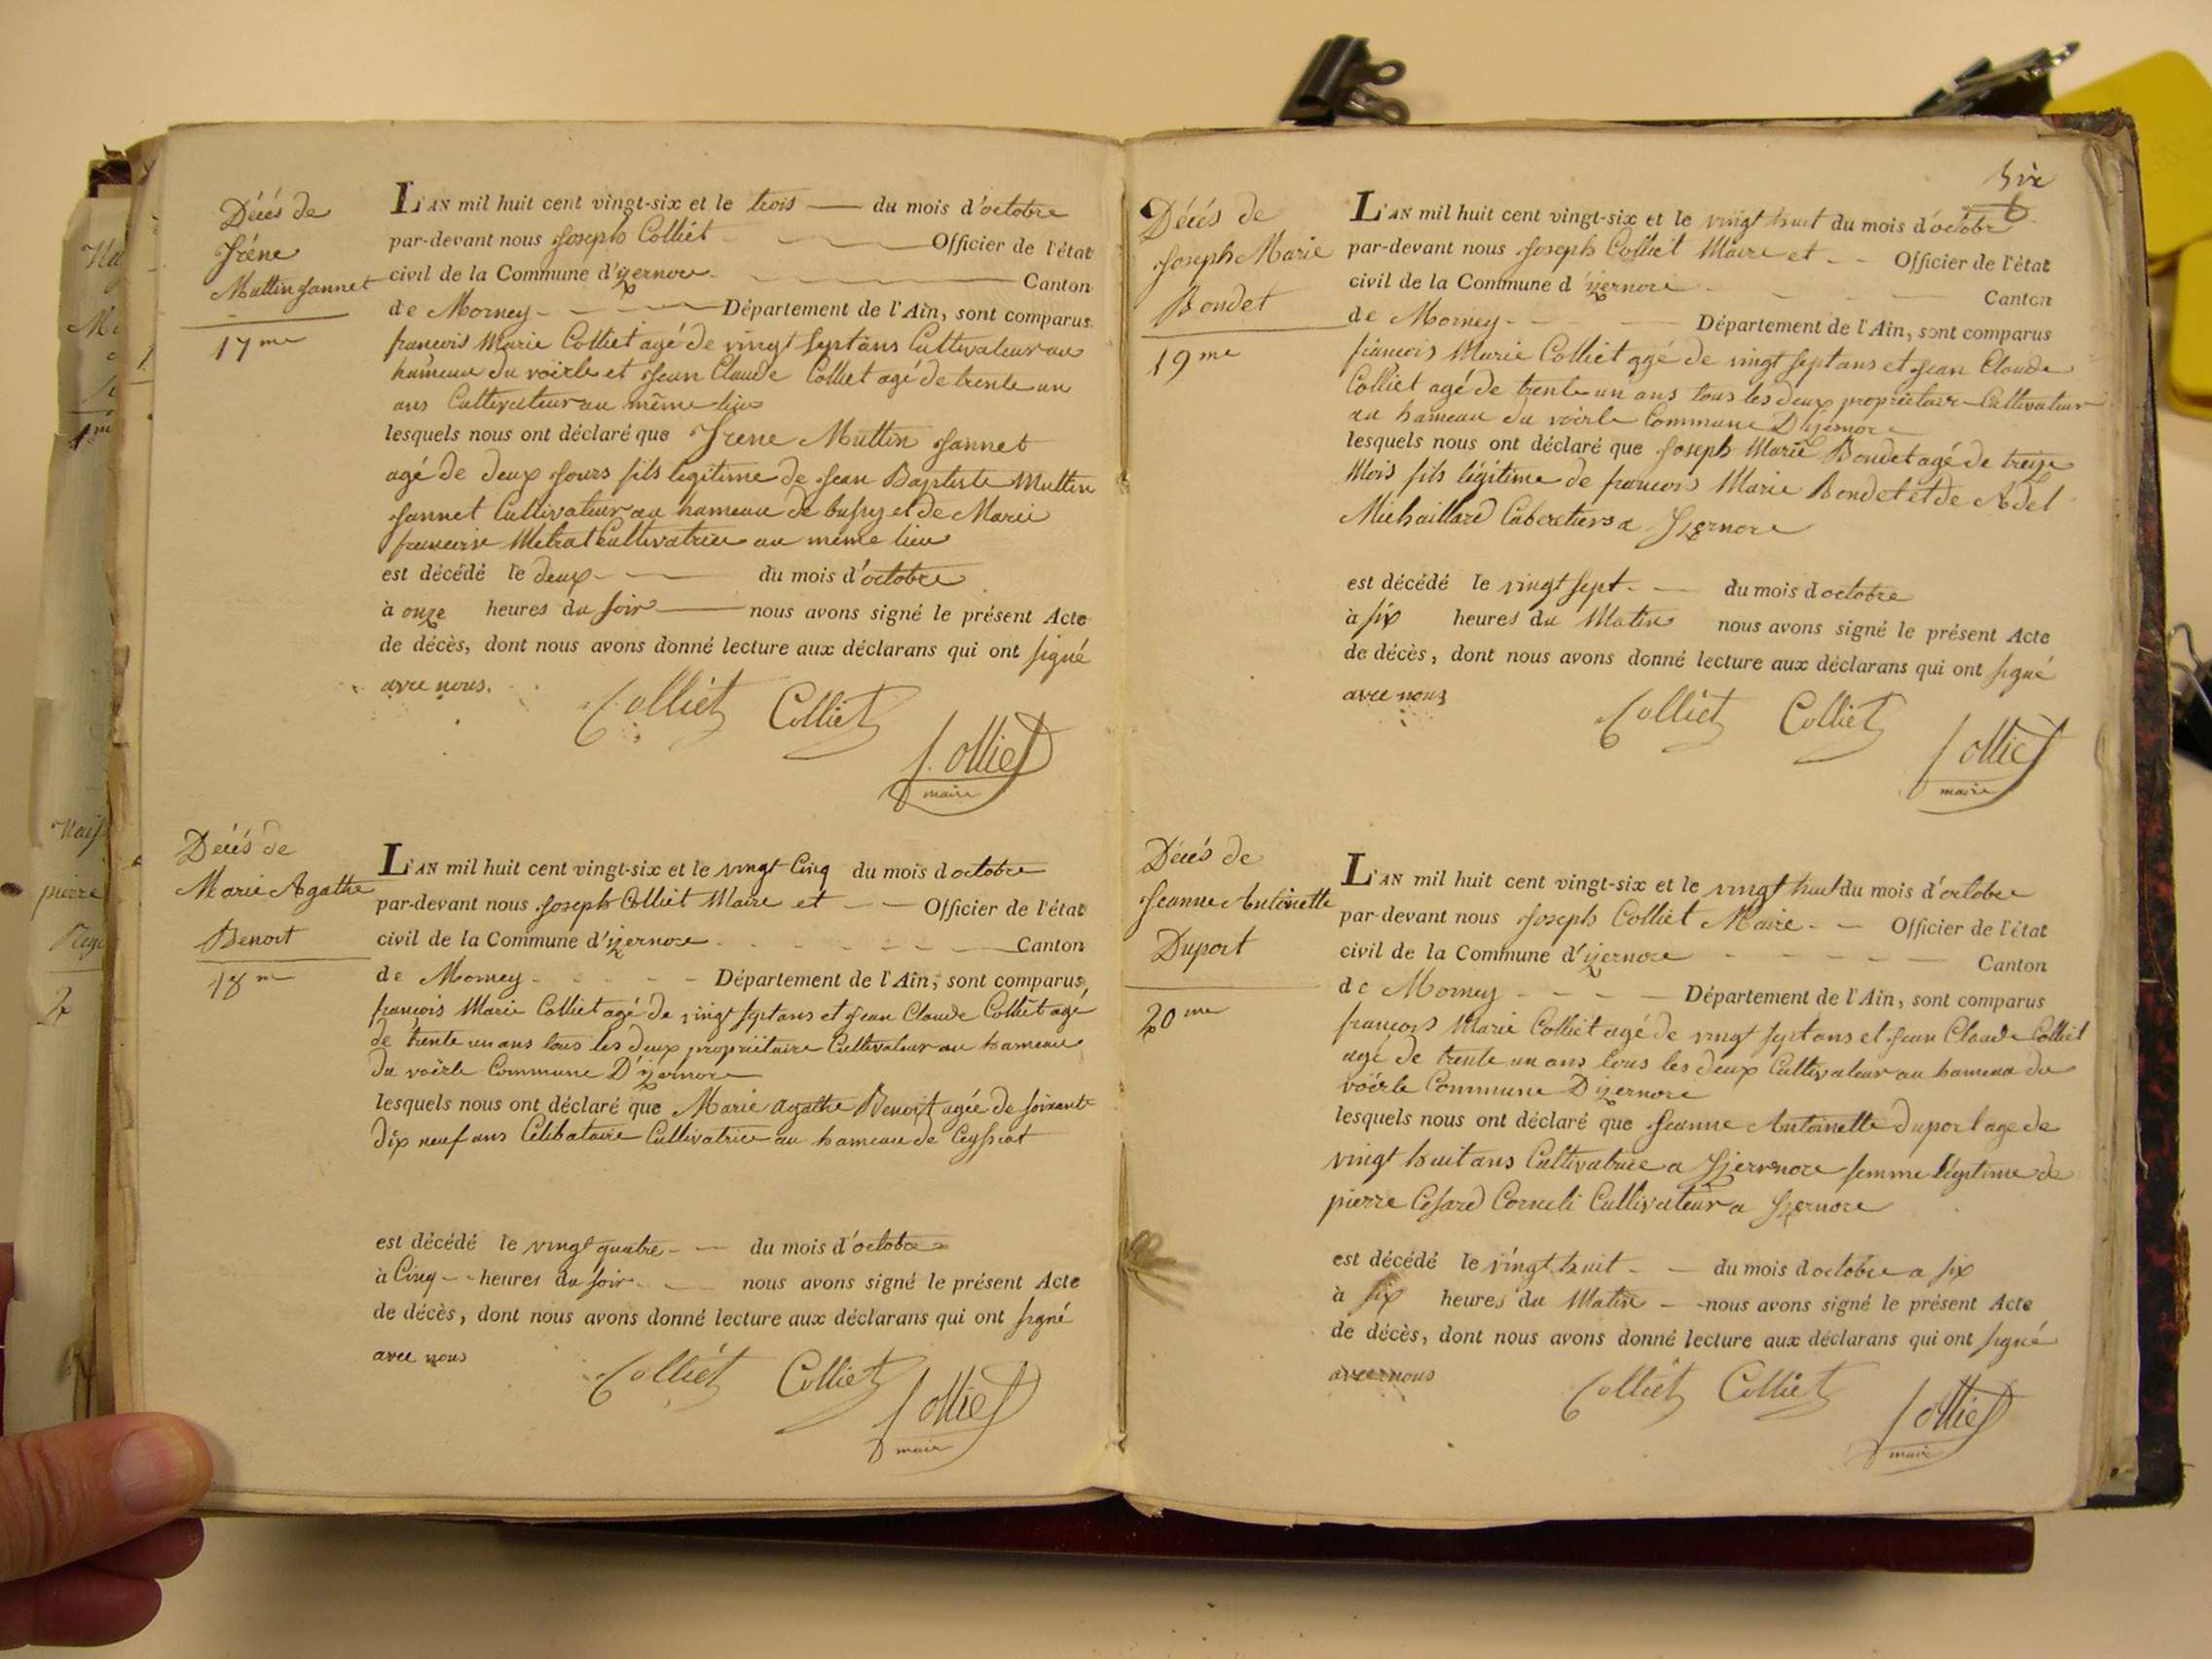 Décés de
Iréne
Muttin Jannet
17me
L'AN mil huit cent vingt-six et le trois du mois d'octobre
par-devant nous Joseph Colliet Officier de l'état
civil de la Commune d'izernore Canton
de Morney Département de l'Ain, sont comparus
francois Marie Colliet agé de vingt sept ans Cultivateur au
hameau du voërle et Jean Claude Colliet agé de trente un
ans Cultivateur au même lieu
lesquels nous ont déclaré que Irene Muttin Jannet
agé de deux Jours fils legitime de Jean Baptiste Muttin
Jannet Cultivateur au hameau de bussy et de Marie
francoise Metrat Cultivatrice au même lieu
est décédé le deux du mois d'octobre
à onze heures du soir nous avons signé le présent Acte
de décès, dont nous avons donné lecture aux déclarans qui ont signé
avec nous.
Colliet Colliet
Colliet
maire
Décés de
Marie Agathe
Benoit
18me
L'AN mil huit cent vingt-six et le vingt Cinq du mois d octobre
par-devant nous Joseph Colliet Maire et Officier de l'état
civil de la Commune d'izernore Canton
de Morney Département de l'Ain, sont comparus
françois Marie Colliet agé de vingt sept ans et Jean Claude Colliet agé
de trente un ans tous les deux propriétaire Cultivateur au hameau
du voërle Commune D'izernore
lesquels nous ont déclaré que Marie agathe Benoit agée de soixante
dix neuf ans Célibataire Cultivatrice au hameau de Ceyssiat
est décédé le vingt quatre du mois d'octobre
à Cinq heures du soir nous avons signé le présent Acte
de décès, dont nous avons donné lecture aux déclarans qui ont signé
avec nous
Colliet Colliet
Colliet
maire
Six
6
Décés de
Joseph Marie
Bondet
19me
L'AN mil huit cent vingt-six et le vingt huit du mois d'octobre
par-devant nous Joseph Colliet Maire et Officier de l'état
civil de la Commune d'izernore Canton
de Morney Département de l'Ain, sont comparus
francois Marie Colliet agé de vingt sept ans et Jean Claude
Colliet agé de trente un ans tous les deux propriétaire Cultivateur
au hameau du voërle Commune D'izernore
lesquels nous ont déclaré que Joseph Marie Bondet agé de treize
Mois fils légitime de francois Marie Bondet et de Adel
Michaillard Cabaretiers a Izernore
est décédé le vingt sept du mois d octobre
à six heures du Matin nous avons signé le présent Acte
de décès, dont nous avons donné lecture aux déclarans qui ont signé
avec nous
Colliet Colliet
Colliet
maire
Décés de
Jeanne Antoinette
Duport
20me
L'AN mil huit cent vingt-six et le vingt huit du mois d'octobre
par-devant nous Joseph Colliet Maire Officier de l'état
civil de la Commune d'izernore Canton
de Morney Département de l'Ain, sont comparus
francois Marie Colliet agé de vingt sept ans et Jean Claude Colliet
agé de trente un ans tous les deux Cultivateur au hameau du
voërle Commune D izernore
lesquels nous ont déclaré que Jeanne Antoinette duport age de
vingt huit ans Cultivatrice a Izernore femme légitime de
pierre Cesard Corneli Cultivateur a Izernore
est décédé le vingt huit du mois d octobre a six
à six heures du Matin nous avons signé le présent Acte
de décès, dont nous avons donné lecture aux déclarans qui ont signé
avec nous
Colliet Colliet
Colliet
maire